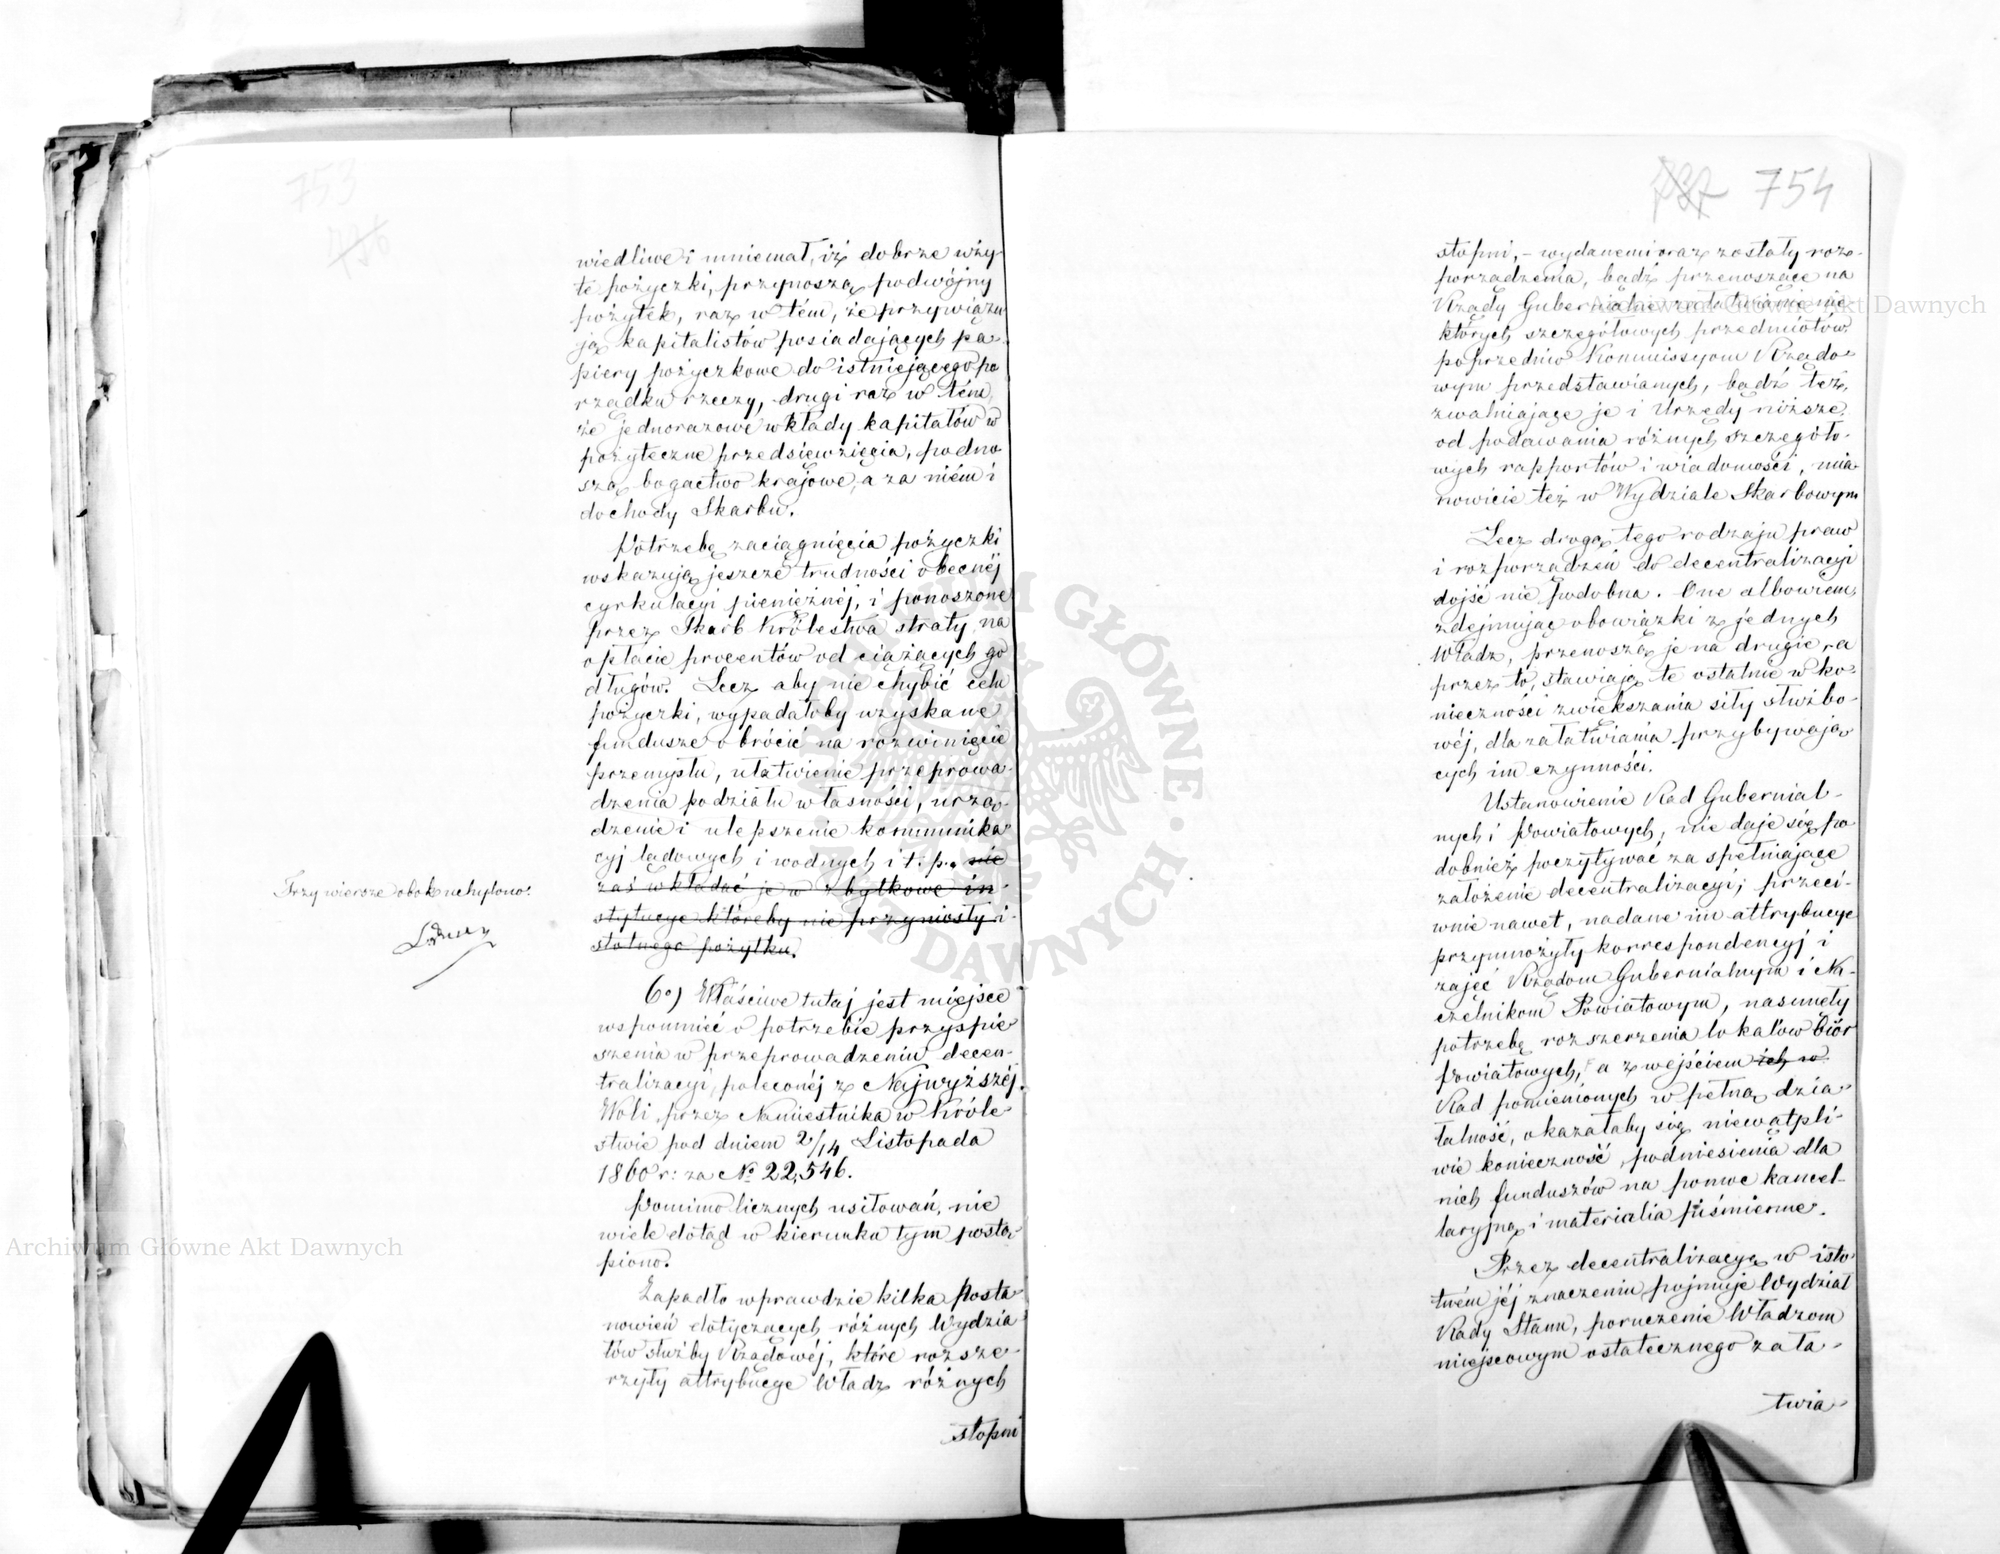 753
736
wiedliwe i mniemał, iż dobrze uży-
te pożyczki, przynoszą podwójny
pożytek, raz w tém, że przywiązu
ją kapitalistów posiadających pa-
piery pożyczkowe do istniejącego po
rządku rzeczy, drugi raz w tém,
że jednorazowe wkłady kapitałów w
pożyteczne przedsięwzięcia, podno
szą bogactwo krajowe, a za niém i
dochody Skarbu.
Potrzebę zaciągnięcia pożyczki
wskazują jeszcze trudności obecnéj
cyrkulacyi pieniężnéj, i ponoszone
przez Skarb Królestwa straty na
opłacie procentów od ciążących go
długów. Lecz aby nie chybić celu
pożyczki, wypadałoby uzyskane
fundusze obrócić na rozwinięcie
przemysłu, ułatwienie przeprowa-
dzenia podziału własności, urzą-
dzenie i ulepszenie kommunika-
cyj lądowych i wodnych i t. p. nie
zaś wkładać je w zbytkowe in-
stytucye któreby nie przyniosły i-
stotnego pożytku.
Trzy wiersze obok uchylono.
6o) Właściwe tutaj jest miejsce
wspomnieć o potrzebie przyspie-
szenia w przeprowadzeniu decen-
tralizacyi, poleconéj z Najwyższéj
Woli, przez Namiestnika w Króle-
stwie pod dniem 2/14 Listopada
1860 r: za № 22,546.
Pomimo licznych usiłowań, nie
wiele dotąd w kierunku tym postą-
piono.
Zapadło wprawdzie kilka Posta-
nowień dotyczących różnych Wydzia-
łów służby Rządowéj, które rozsze-
rzyły attrybucye Władz różnych
stopni
737 754
stopni, – wydanemi oraz zostały roz-
porządzenia, bądź przenoszące na
Rządy Gubernialne załatwianie nie-
których szczegółowych przedmiotów
poprzednio Kommissyom Rządo-
wym przedstawianych, bądź też
zwalniające je i Urzędy niższe
od podawania różnych szczegóło-
wych rapportów i wiadomości, mia-
nowicie też w Wydziale Skarbowym
Lecz drogą tego rodzaju praw
i rozporządzeń do decentralizacyi
dojść nie podobna. One albowiem,
zdejmując obowiązki z jednych
Władz, przenoszą je na drugie, a
przez to, stawiają te ostatnie w ko-
nieczności zwiększania siły służbo-
wéj, dla załatwiania przybywają-
cych im czynności.
Ustanowienie Rad Gubernial-
nych i Powiatowych, nie daje się po
dobnież poczytywać za spełniające
założenie decentralizacyi; przeci-
wnie nawet, nadane im attrybucye
przymnożyły korrespondencyj i
zajęć Rządom Gubernialnym i Na-
czelnikom Powiatowym, nasunęły
potrzebę rozszerzenia lokalów Biór
Powiatowych, a z wejściem ich w
Rad pomienionych w pełną dzia-
łalność, okazałaby się niewątpli-
wie konieczność podniesienia dla
nich funduszów na pomoc kancel-
laryjną i materialia piśmienne.
Przez decentralizacyę w isto-
tném jéj znaczeniu pojmuje Wydział
Rady Stanu, poruczenie Władzom
miejscowym ostatecznego zała-
twia-
Archiwum Główne Akt Dawnych
Archiwum Główne Akt Dawnych
ARCHIWUM GŁÓWNE AKT DAWNYCH